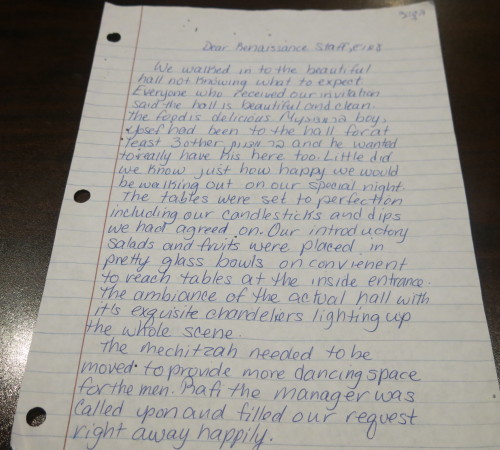 בס"ד
Dear Renaissance Staff,
We walked in to the beautiful
hall not knowing what to expect
Everyone who received our invitation
said the hall is beautiful and clean.
the food is delicious My בר מצוה boy,
Yosef had been to the hall for at
least 3 other בר מצוה and he wanted
to really have his here too. Little did
we know just how happy we would
be walking out on our special night.
The tables were set to perfection
including our candlesticks and dips
we had agreed on. Our introductory
salads and fruits were placed in
pretty glass bowls on convienent
to reach tables at the inside entrance.
The ambiance of the actual hall with
it's exquisite chandeliers lighting up
the whole scene.
The mechitzah needed to be
moved to provide more dancing space
for the men. Rafi the manager was
called upon and filled our request
right away happily.